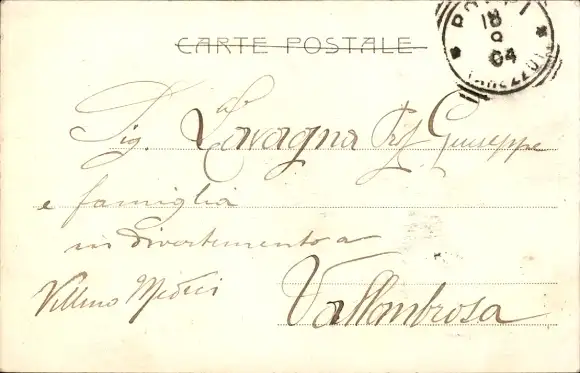 CARTE POSTALE
POPPI
18
9
04
(AREZZO)
Sig. Lavagna Prof. Giuseppe
e famiglia
in divertimento a
Villino Medici
Vallombrosa